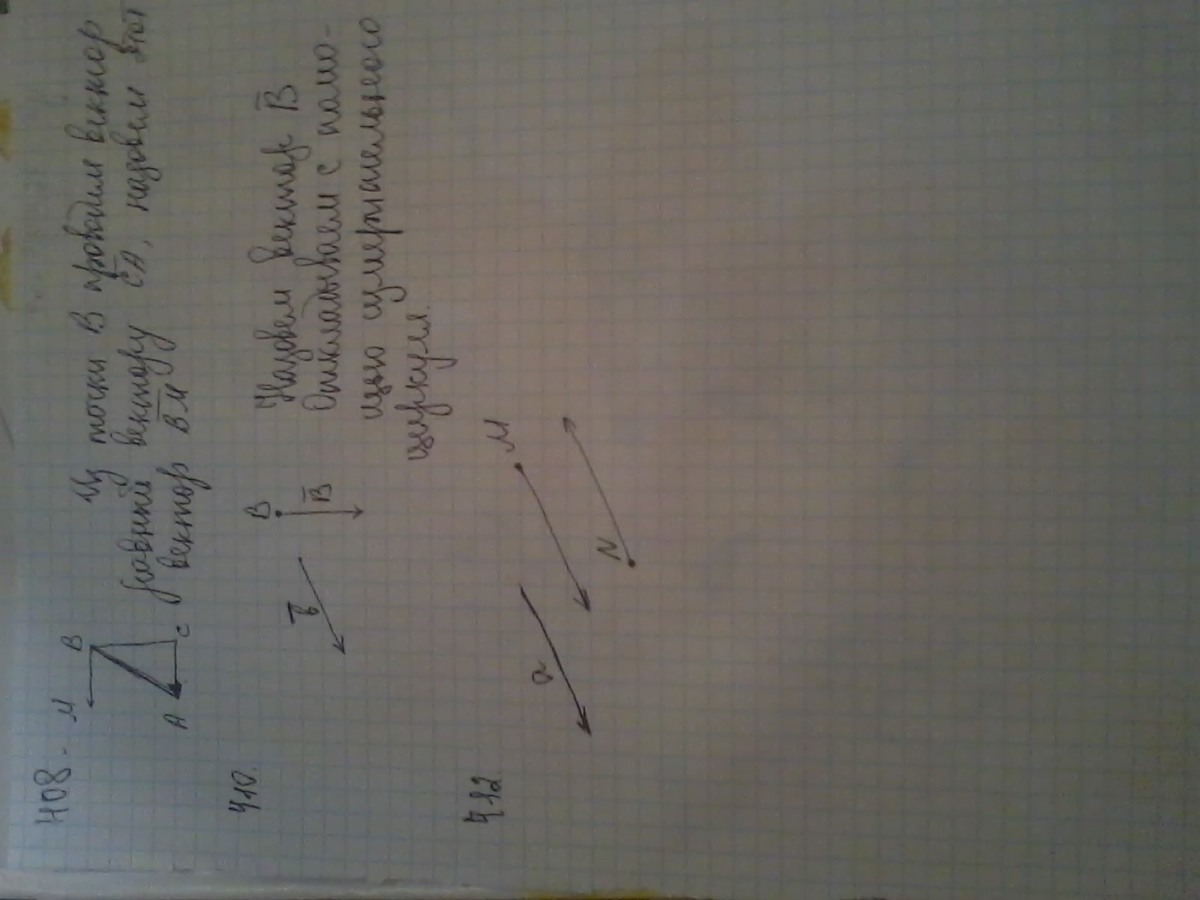 408.
М В
А С
Из точки В проводим вектор
равный вектору C̅A̅, назовем этот
вектор B̅M̅
410.
b̅
В
B̅
Назовем вектор B̅
Откладываем с помо-
щью измерительного
циркуля.
412.
а
М
N